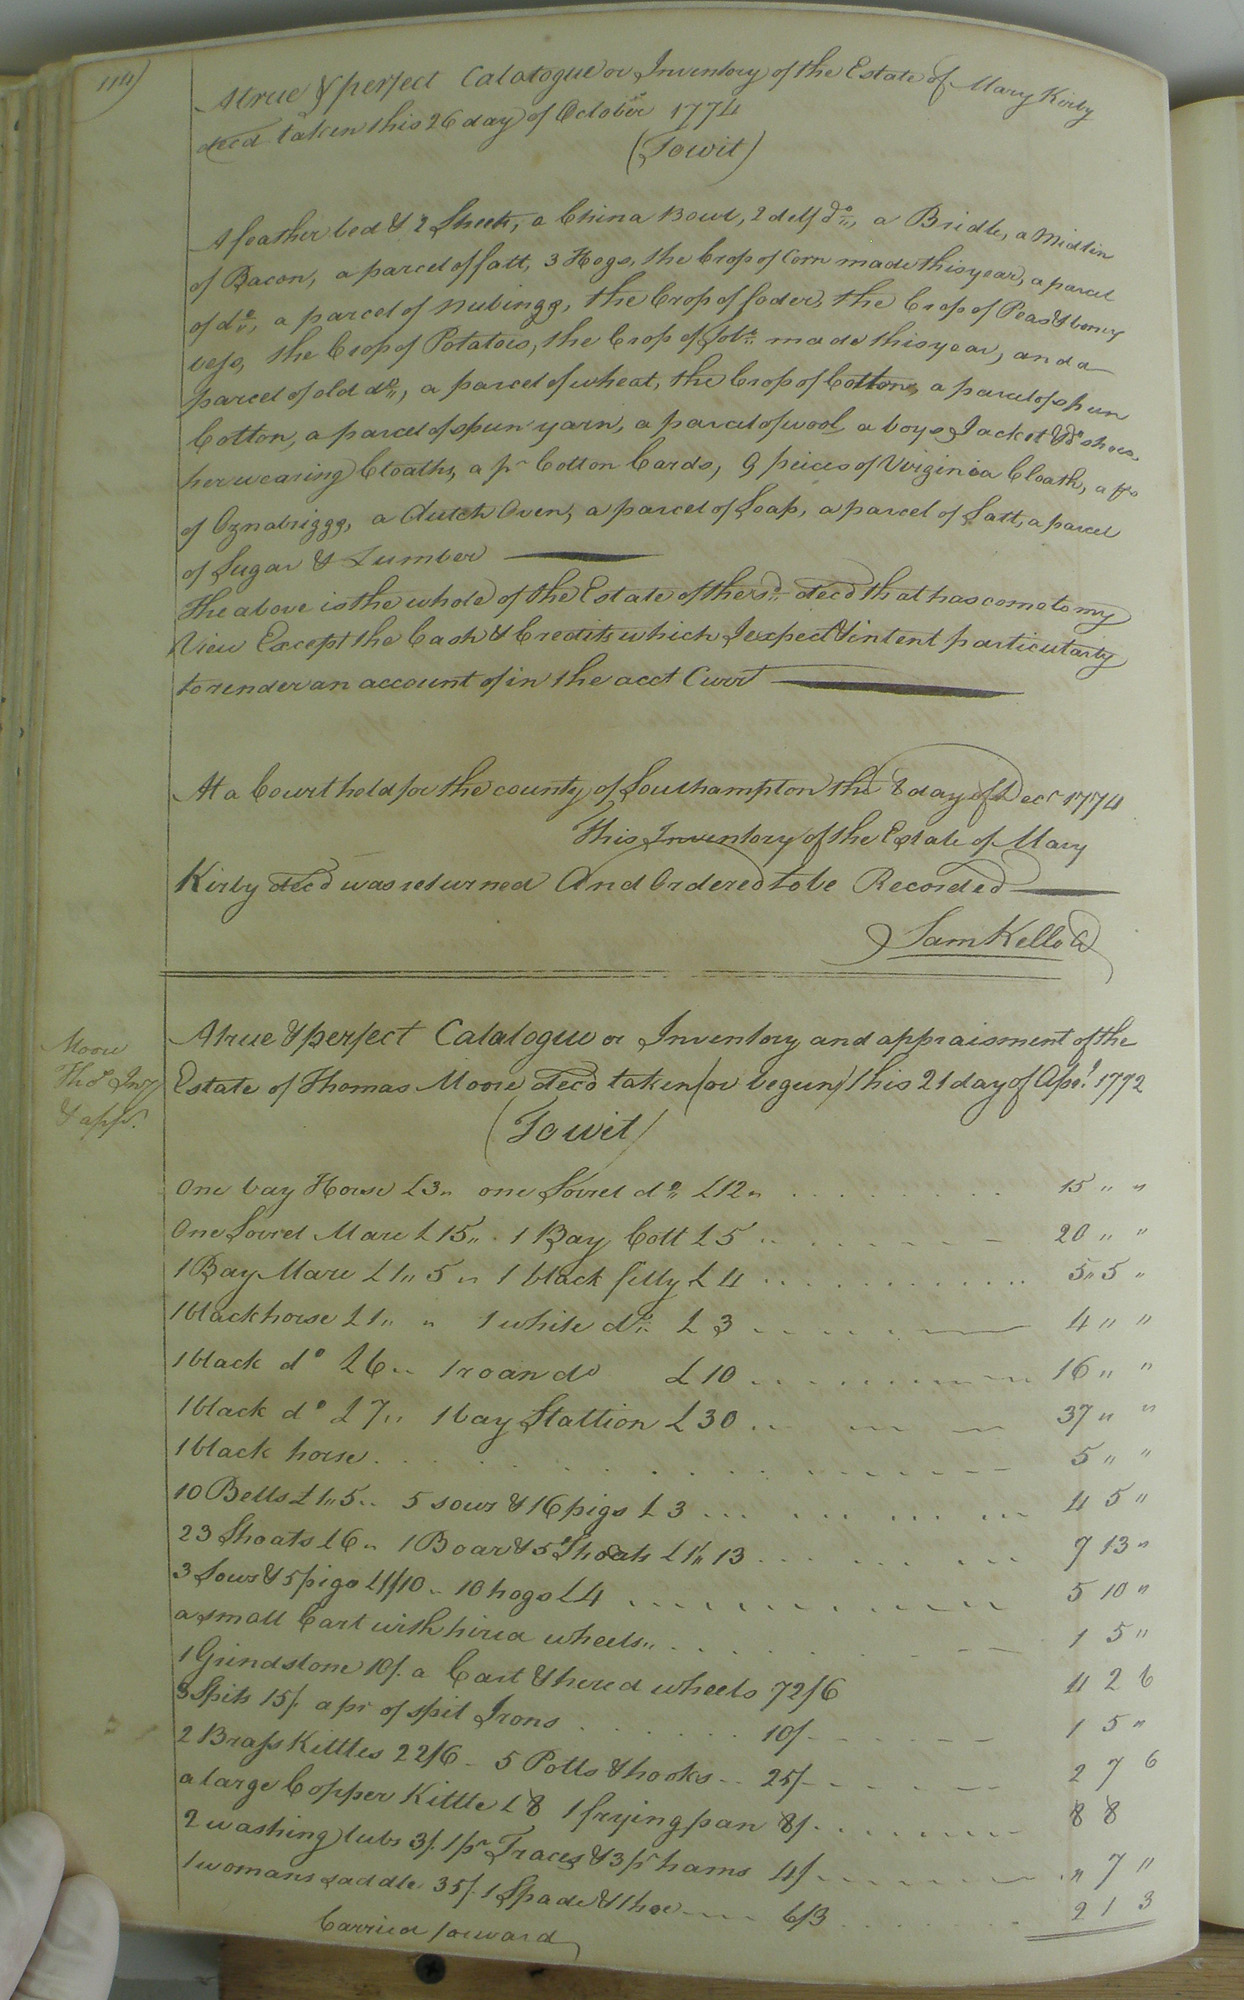 114)
A true & perfect Catalogue or Inventory of the Estate of Mary Kirby
decd taken this 26 day of October 1774
(Towit)
A feather bed & 2 Sheets, a China Bowl, 2 delf do, a Bridle, a Midlin
of Bacon, a parcel of fatt, 3 Hogs, the Crop of Corn made this year, a parcel
of do, a parcel of nubings, the Crop of foder, the Crop of Peas &
the Crop of Potatoes, the Crop of Tobo made this year, and a
parcel of old do, a parcel of wheat, the Crop of Cotton, a parcel of spun
Cotton, a parcel of spun yarn, a parcel of wool, a boys Jacket & do shoes,
her wearing Cloaths, a pr Cotton Cards, 9 peices of Virginia Cloath, a ps
of Oznabriggs, a dutch Oven, a parcel of Soap, a parcel of Salt, a parcel
of Sugar & Lumber
The above is the whole of the Estate of the sd decd that has come to my
View Except the Cash & Credits which I expect & intent particularly
to render an account of in the acct Currt
At a Court held for the county of Southampton the 8 day of Decr 1774
This Inventory of the Estate of Mary
Kirby decd was returned And Ordered to be Recorded
Sam Kello
Moore
Thos Invy
& appt.
A true & perfect Catalogue or Inventory and appraisment of the
Estate of Thomas Moore decd taken (or begun) this 21 day of Apl. 1772
(Towit)
One bay Horse £3,, one Sorrel do £12,, 15 ,, ,,
One Sorrel Mare £15,, 1 Bay Colt £5 20 ,, ,,
1 Bay Mare £1,, 5 ,, 1 black filly £4 5,, 5 ,,
1 black horse £1,, ,, 1 white do £3 4 ,, ,,
1 black do £6 ,, 1 roan do £10 16 ,, ,,
1 black do £7,, 1 bay Stallion £30 37 ,, ,,
1 black horse 5 ,, ,,
10 Bells £1,, 5 ,, 5 sows & 16 pigs £3 4 5 ,,
23 Shoats £6 ,, 1 Boar & 5 Shoats £1,, 13 7 13 ,,
3 Sows & 5 pigs £1/10 ,, 10 hogs £4 5 10 ,,
a small Cart with hired wheels 1 5 ,,
1 Grindstone 10/. a Cart & hired wheels 72/6 4 2 6
3 Spits 15/. a pr of spit Irons 10/ 1 5 ,,
2 Brass Kittles 22/6 5 Potts & hooks 25/ 2 7 6
a large Copper Kittle £8 1 frying pan 8/ 8 8
2 washing tubs 3/. 1 pr Traces & 3 pr hams 4/ ,, 7 ,,
1 womans saddle 35/. 1 Spade & 1 hoe 6/3 2 1 3
Carried forward